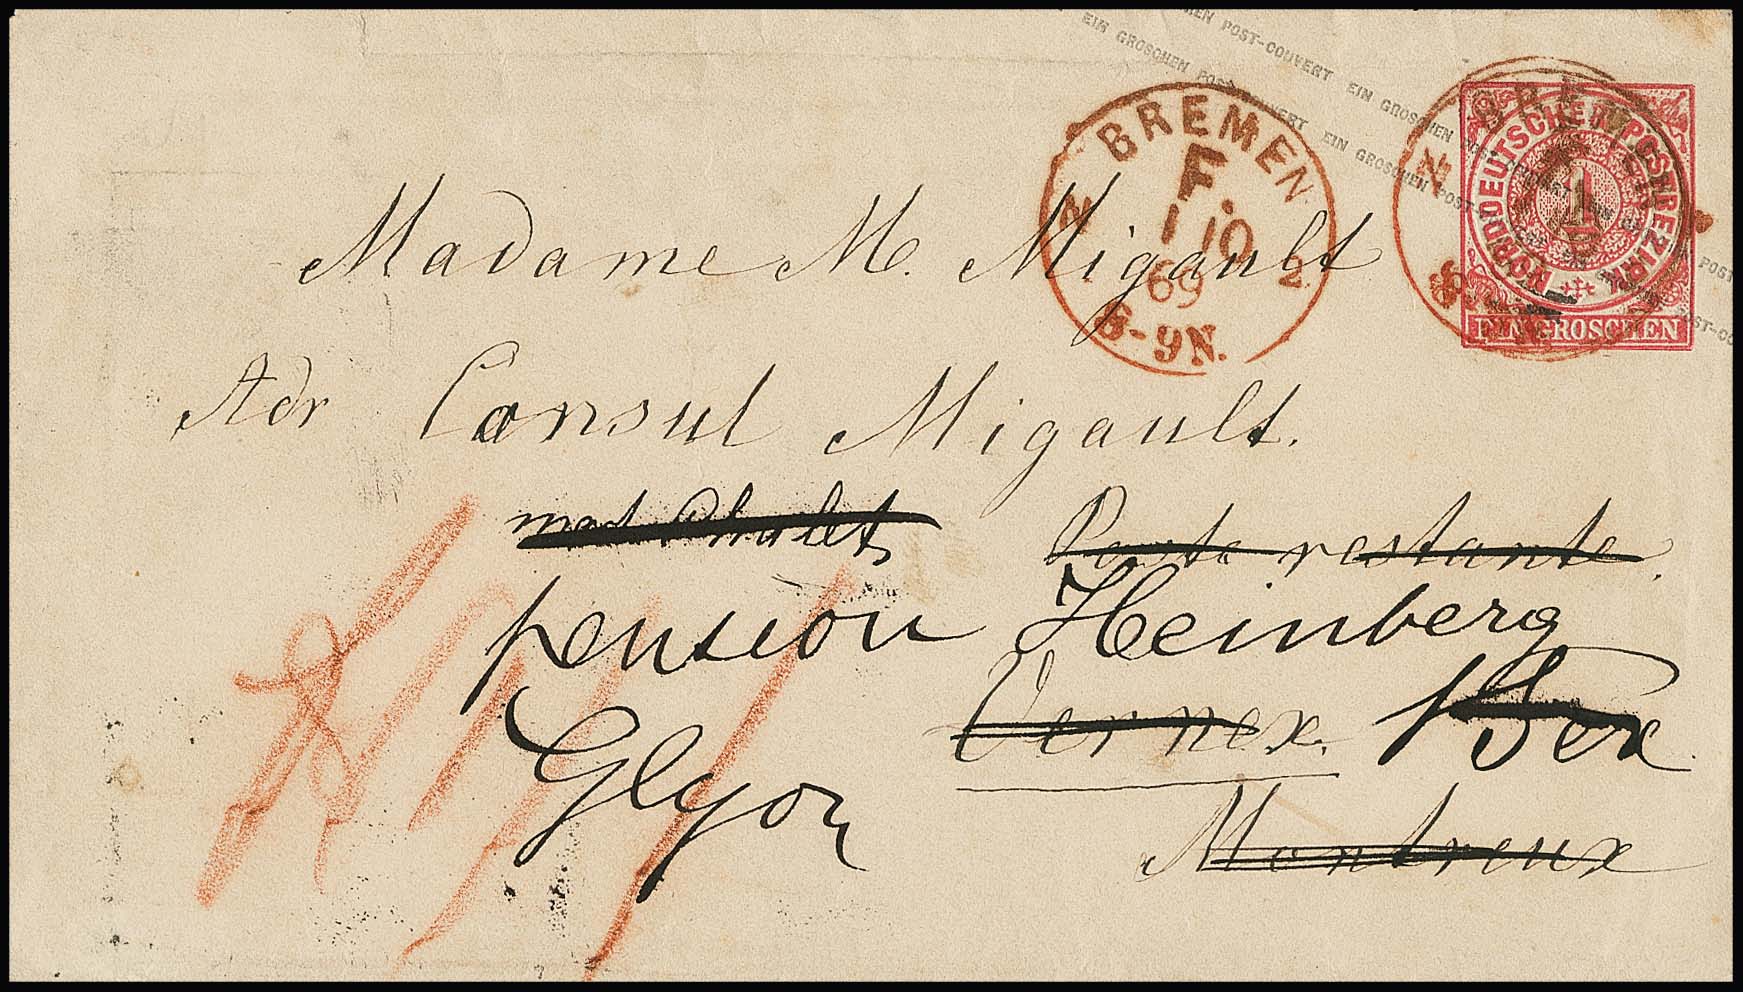 EIN GROSCHEN POST-COUVERT EIN GROSCHEN POST-COUVERT
EIN GROSCHEN POST-COUVERT EIN GROSCHEN POST-COUVERT
BREMEN
F.
1 10
69
8-9N.
N 2
BREMEN
N
NORDDEUTSCHER POSTBEZIRK
1
EIN GROSCHEN
Madame M. Migault
Adr Consul Migault.
Poste restante.
pension Heinberg
Vernex. Bex
Glyon
Montreux